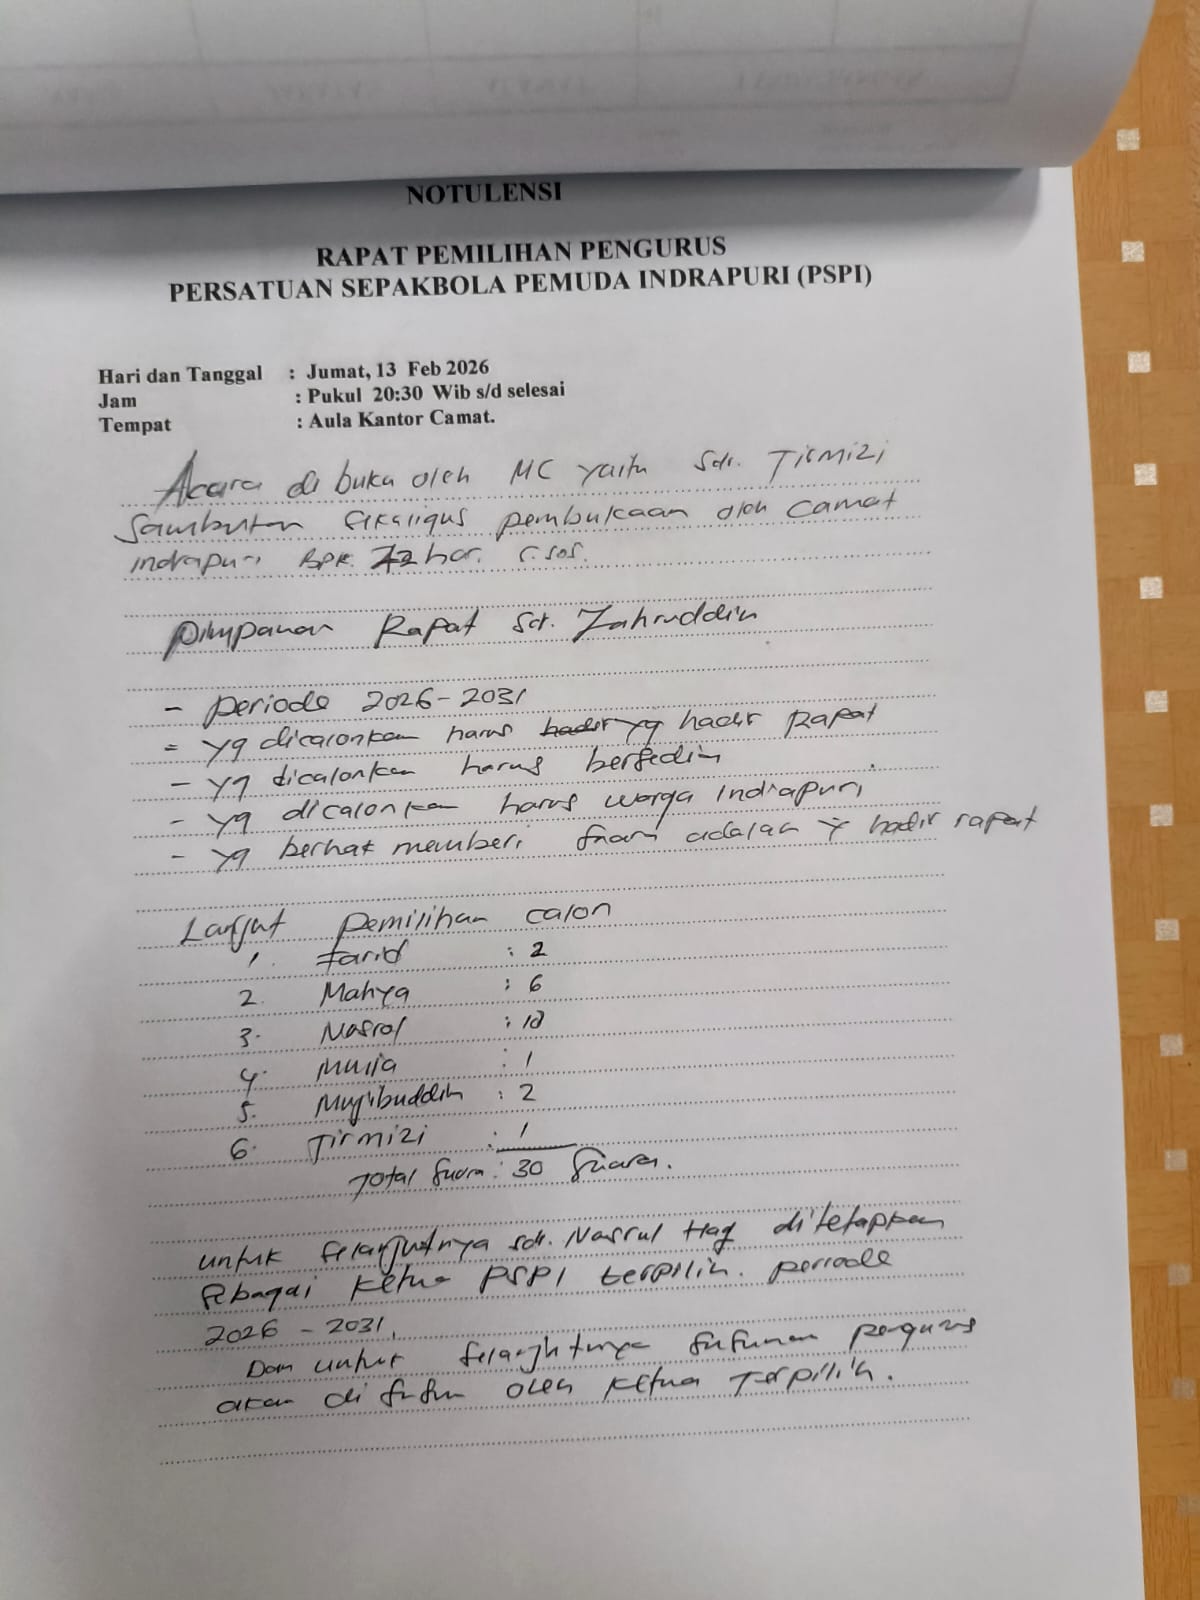 NOTULENSI
RAPAT PEMILIHAN PENGURUS
PERSATUAN SEPAKBOLA PEMUDA INDRAPURI (PSPI)
Hari dan Tanggal : Jumat, 13 Feb 2026
Jam : Pukul 20:30 Wib s/d selesai
Tempat : Aula Kantor Camat.
Acara di buka oleh MC yaitu Sdr. Tirmizi
Sambutan sekaligus pembukaan oleh Camat
Indrapuri Bpk. Azhar. S.Sos.
Pimpanan Rapat Sdr. Zahruddin
- periode 2026-2031
= yg dicalonkan harus hadir yg hadir Rapat
- yg dicalonkan harus bersedia
- yg dicalonkan harus warga Indrapuri
- yg berhak memberi suara adalah hadir rapat
Lanjut pemilihan calon
1. Farid : 2
2. Mahya : 6
3. Nasrol : 18
4. Mulia : 1
5. Mujibuddin : 2
6. Tirmizi : 1
Total suara : 30 suara.
untuk selanjutnya sdr. Nasrul Haq ditetapkan
sebagai ketua PSPI terpilih. periode
2026 - 2031.
Dan untuk selanjutnya susunan pengurus
akan di susun oleh ketua Terpilih.